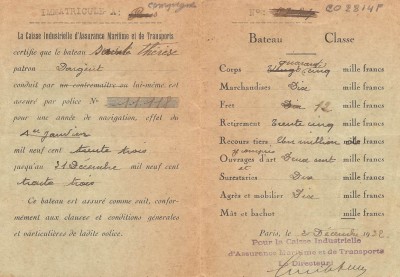 IMMATRICULÉ A: Compiègne
La Caisse Industrielle d'Assurance Maritime et de Transports
certifie que le bateau Sainte Thérèse
patron
conduit par un contremaître ou lui-même, est
assuré par police N°
pour une année de navigation, effet du
1er Janvier
mil neuf cent trente trois
jusqu'au 31 Décembre mil neuf cent
trente trois
Ce bateau est assuré comme suit, confor-
mément aux clauses et conditions générales
et particulières de ladite police.
N° CO 2814 F
Bateau Classe
quarante
Corps cinq mille francs
Marchandises Dix mille francs
Fret Dix 12 mille francs
Retirement Trente cinq mille francs
Recours tiers Un million mille francs
y compris
Ouvrages d'art Deux cent mille francs
et
Surestaries Dix mille francs
Agrès et mobilier Dix mille francs
Mât et bachot mille francs
Paris, le 2 Décembre 1932
Pour la Caisse Industrielle
d'Assurance Maritime et de Transports
Le Directeur: